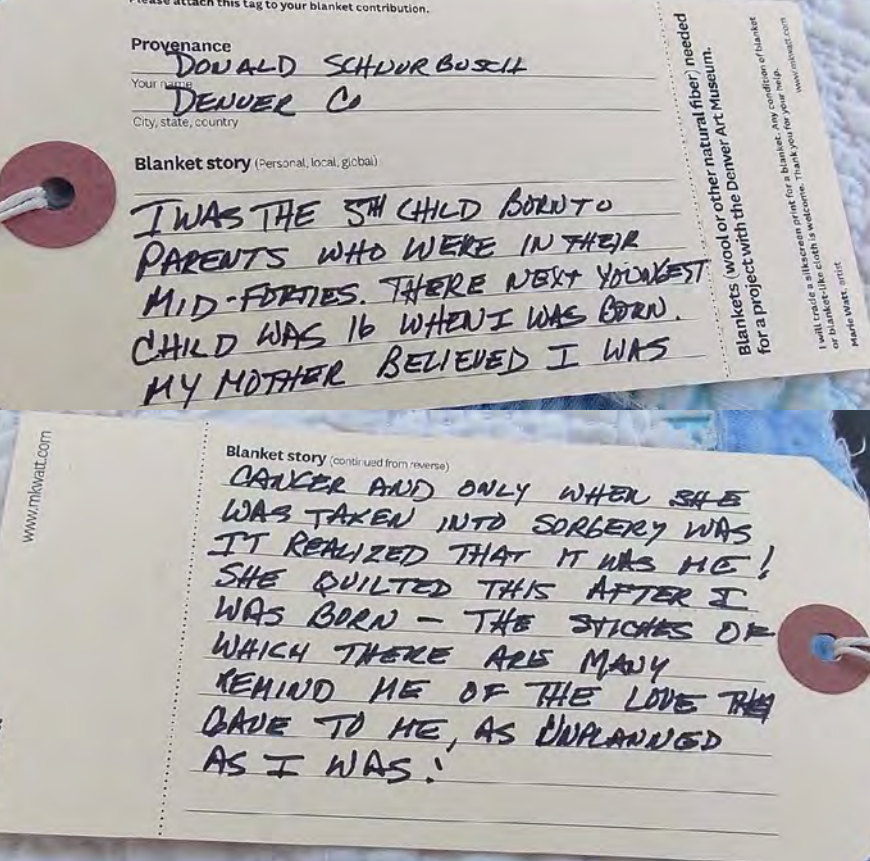 Please attach this tag to your blanket contribution.
Provenance
DONALD SCHUURBUSCH
Your name
DENVER CO
City, state, country
Blanket story (Personal, local, global)
I WAS THE 5TH CHILD BORN TO
PARENTS WHO WERE IN THEIR
MID-FORTIES. THERE NEXT YOUNGEST
CHILD WAS 16 WHEN I WAS BORN.
MY MOTHER BELIEVED I WAS
Blankets (wool or other natural fiber) needed
for a project with the Denver Art Museum.
I will trade a silkscreen print for a blanket. Any condition of blanket
or blanket-like cloth is welcome. Thank you for your help.
Marie Watt, artist
www.mkwatt.com
www.mkwatt.com
Blanket story (continued from reverse)
CANCER AND ONLY WHEN SHE
WAS TAKEN INTO SORGERY WAS
IT REALIZED THAT IT WAS ME!
SHE QUILTED THIS AFTER I
WAS BORN – THE STICHES OF
WHICH THERE ARE MANY
REMIND ME OF THE LOVE THEY
GAVE TO ME, AS UNPLANNED
AS I WAS!